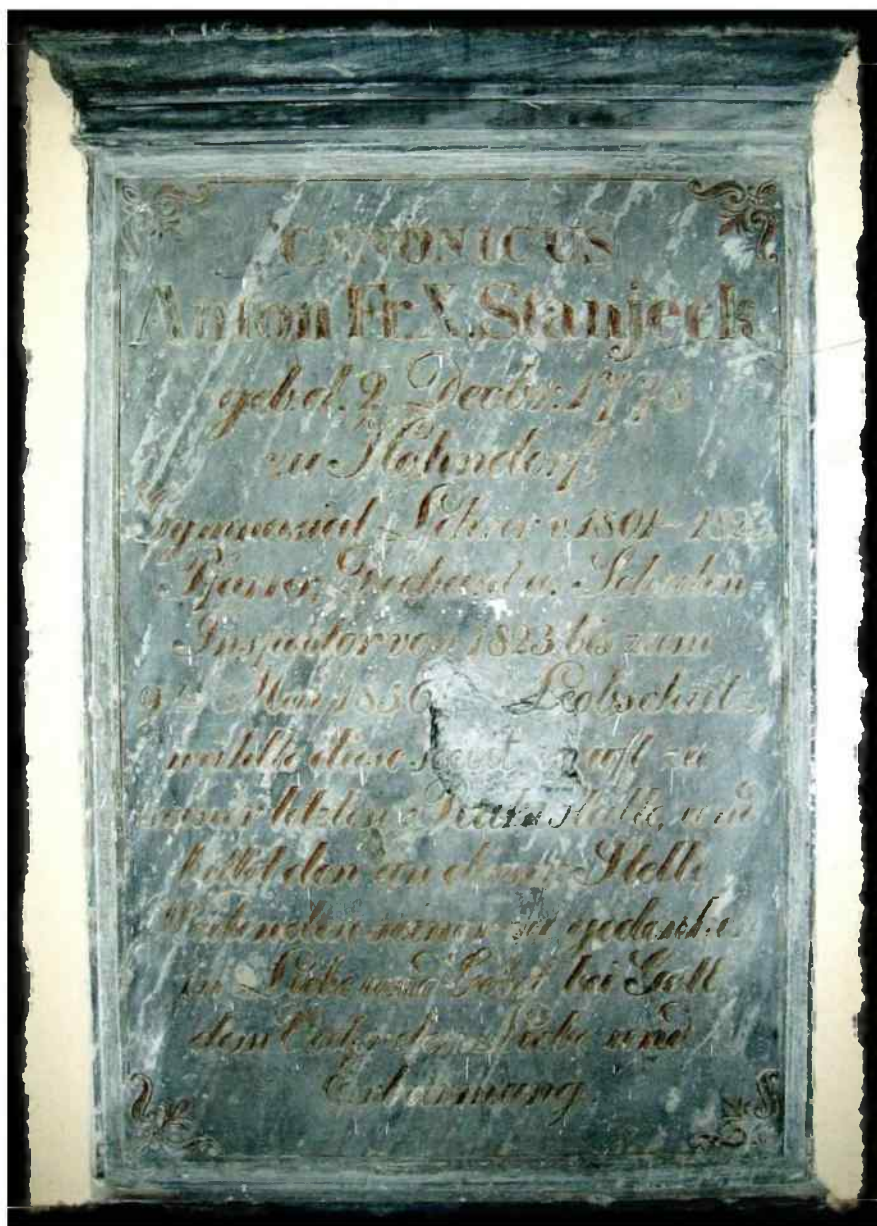 CANONICUS
Anton Fr. X. Stanjeck
geb. d. 2. Decbr. 177
zu Hohndorf,
Gymnasial-Lehrer v. 1801–182
Pfarrer, Dechant u. Schulen
Inspector von 1823 bis zum
9 1836 Leobschütz
wählte diese Gruft zu
seiner letzten Stätte, und
bittet den an dieser Stelle
seiner zu gedenken
in Liebe und Gebet bei Gott
dem der Liebe und
Erbarmung.